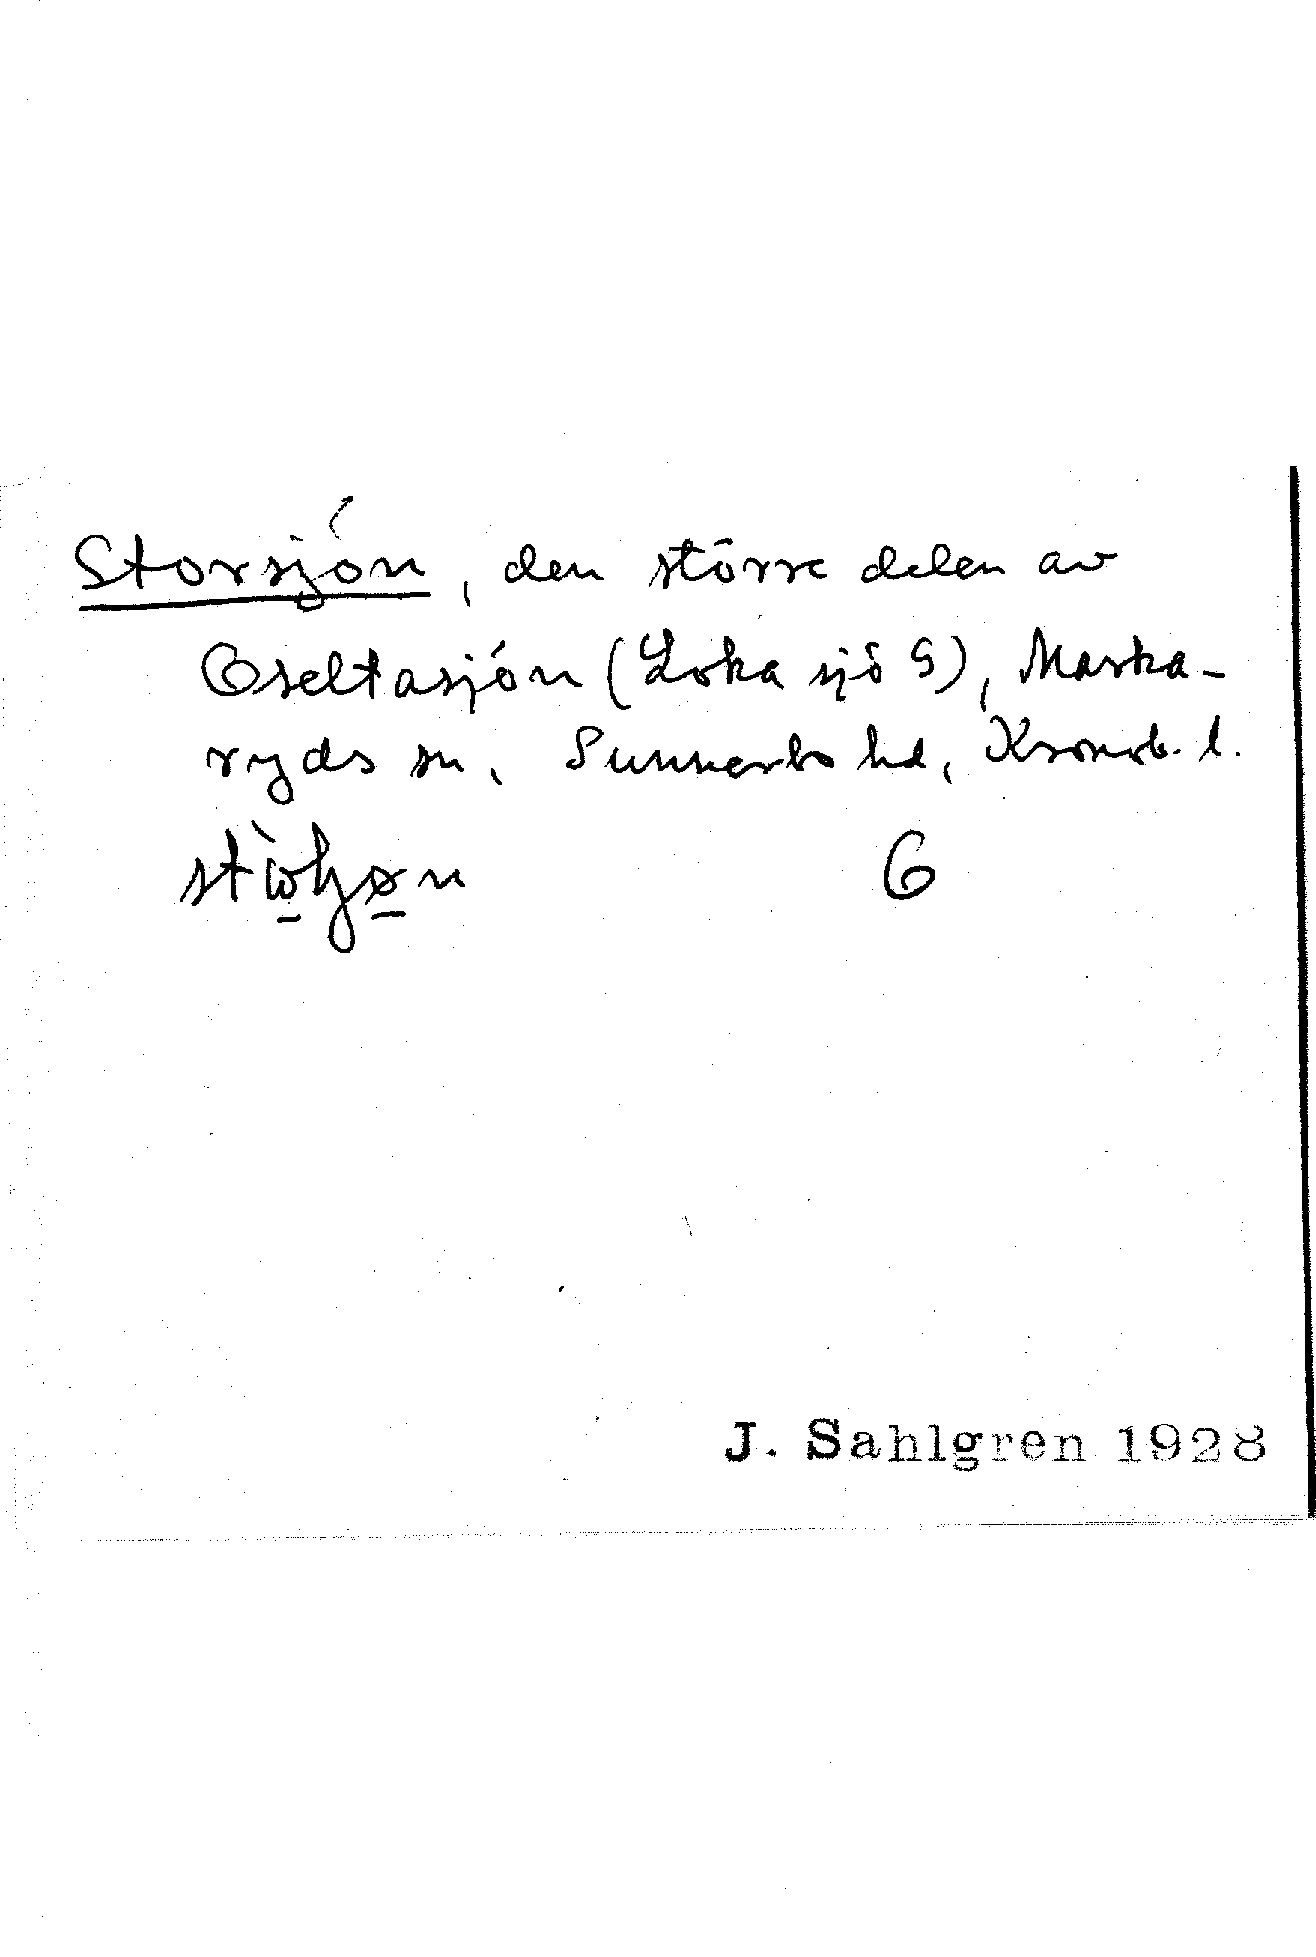 Storsjön, den större delen av
Eseltasjön (Loka sjö G), Marka-
ryds sn, Sunnerbo hd, Kronob. l.
6
J. Sahlgren 1928